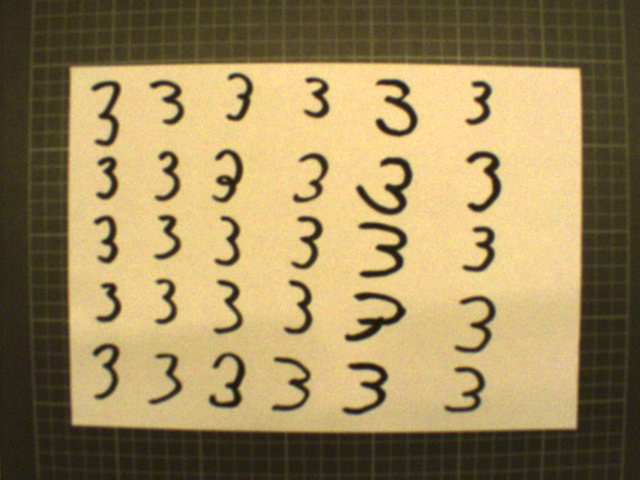 3 3 3 3 3 3
3 3 3 3 3 3
3 3 3 3 3 3
3 3 3 3 3 3
3 3 3 3 3 3